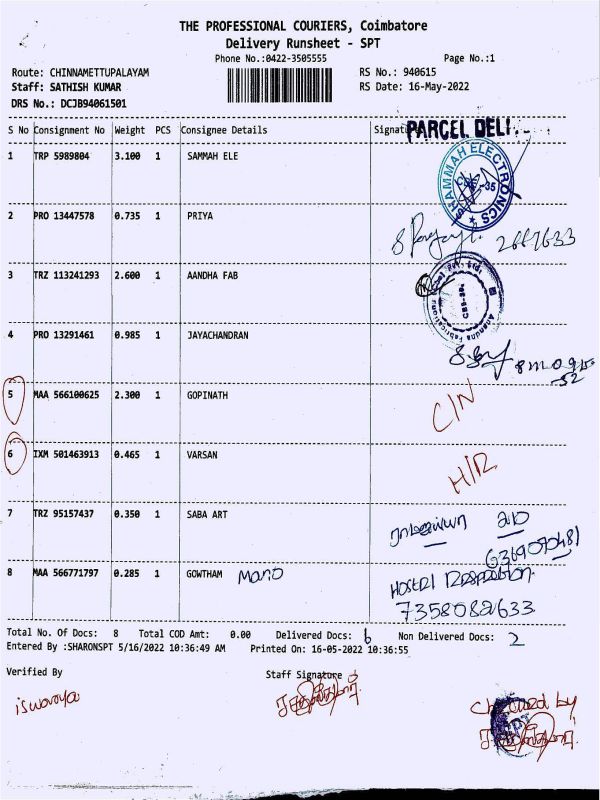 THE PROFESSIONAL COURIERS, Coimbatore
Delivery Runsheet - SPT
Phone No.:0422-3505555 Page No.:1
Route: CHINNAMETTUPALAYAM RS No.: 940615
Staff: SATHISH KUMAR RS Date: 16-May-2022
DRS No.: DCJB94061501
S No Consignment No Weight PCS Consignee Details Signature
PARCEL DELI
1 TRP 5989804 3.100 1 SAMMAH ELE
SHAMMAH ELECTRONICS
2 PRO 13447578 0.735 1 PRIYA
2667633
3 TRZ 113241293 2.600 1 AANDHA FAB
4 PRO 13291461 0.985 1 JAYACHANDRAN
5 MAA 566100625 2.300 1 GOPINATH C/N
6 IXM 501463913 0.465 1 VARSAN H/R
7 TRZ 95157437 0.350 1 SABA ART
8 MAA 566771797 0.285 1 GOWTHAM Mano HOSTEL
7358082633
Total No. Of Docs: 8 Total COD Amt: 0.00 Delivered Docs: 6 Non Delivered Docs: 2
Entered By :SHARONSPT 5/16/2022 10:36:49 AM Printed On: 16-05-2022 10:36:55
Verified By Staff Signature
iswarya
Checked by